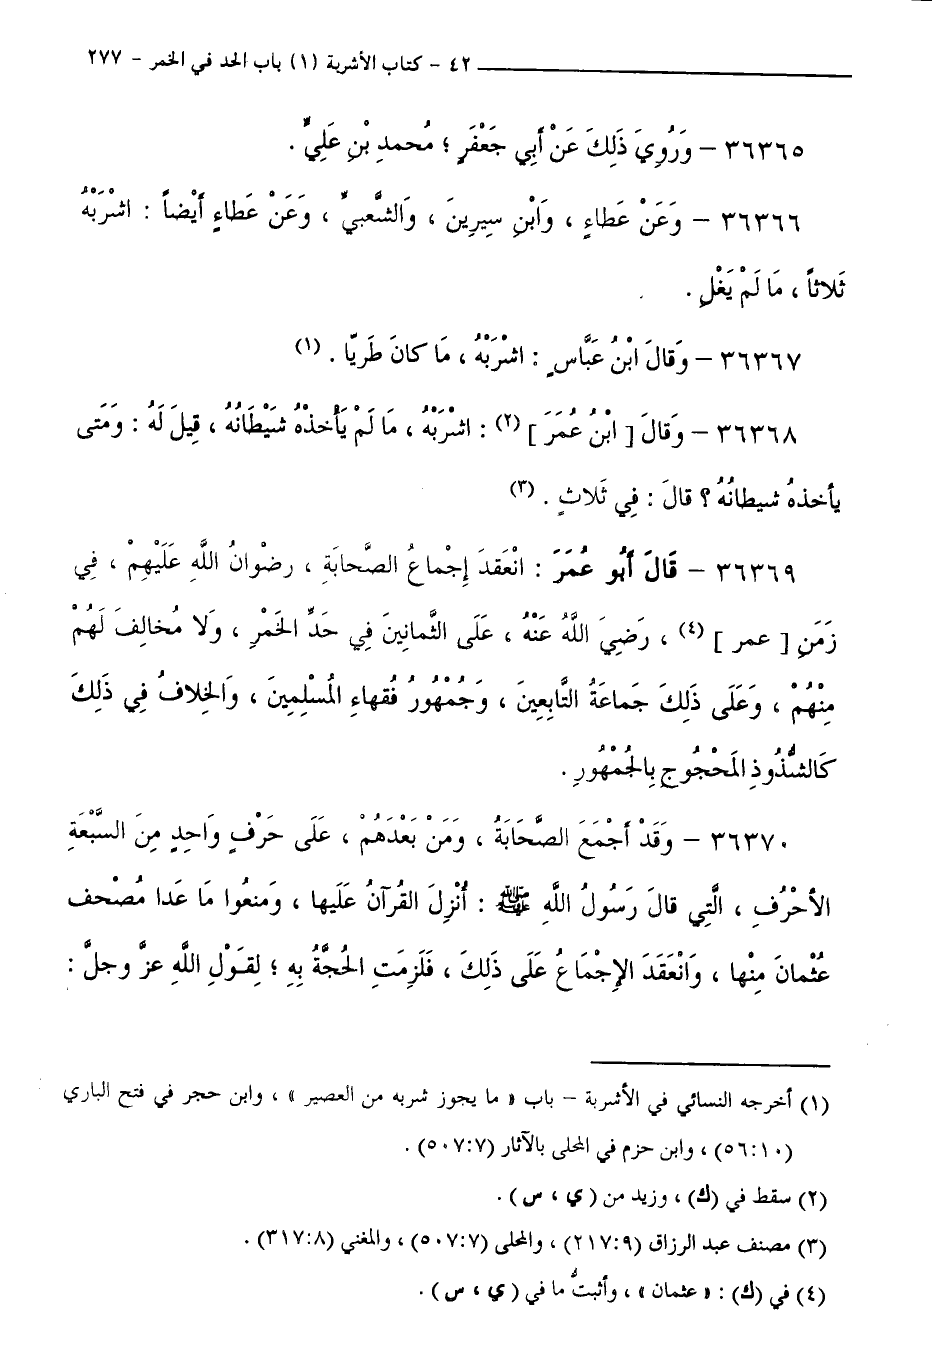 ٤٢ - كتاب الأشربة (١) باب الحد في الخمر - ٢٧٧
٣٦٣٦٥ - وَرُوِيَ ذَلِكَ عَنْ أَبِي جَعْفَرٍ ؛ مُحمدِ بْنِ عَلِيٍّ .
٣٦٣٦٦ - وَعَنْ عَطاءٍ ، وَابْنِ سِيرِينَ ، وَالشَّعبيِّ ، وَعَنْ عَطاءٍ أَيْضاً : اشْرَبْهُ
ثَلاثاً ، مَا لَمْ يَغْلِ .
٣٦٣٦٧ - وَقالَ ابْنُ عَبَّاسٍ : اشْرَبْهُ ، مَا كانَ طَرِيّا . (١)
٣٦٣٦٨ - وَقالَ [ ابْنُ عُمَرَ ] (٢) : اشْرَبْهُ ، مَا لَمْ يَأخذْهُ شَيْطَانُهُ ، قِيلَ لَهُ : وَمَتى
يأخذهُ شيطانُهُ ؟ قالَ : فِي ثَلاثٍ . (٣)
٣٦٣٦٩ - قَالَ أَبُو عُمَرَ : انْعَقدَ إِجْماعُ الصَّحابَةِ ، رضْوانُ اللَّهِ عَلَيْهِمْ ، فِي
زَمَنِ [ عمر ] (٤) ، رَضِيَ اللَّهُ عَنْهُ ، عَلَى الثَّمانِينَ فِي حَدِّ الخَمْرِ ، وَلا مُخالِفَ لَهُمْ
مِنْهُمْ ، وَعَلَى ذَلِكَ جَماعَةُ التَّابِعِينَ ، وَجُمْهُورُ فُقهاءِ المُسْلِمِينَ ، وَالخِلافُ فِي ذَلِكَ
كَالشُّذُوذِ المَحْجُوجِ بِالجُمْهُورِ .
٣٦٣٧٠ - وَقَدْ أَجْمَعَ الصَّحَابَةُ ، وَمَنْ بَعْدَهُمْ ، عَلَى حَرْفٍ وَاحِدٍ مِنَ السَّبْعَةِ
الأحْرُفِ ، الَّتِي قالَ رَسُولُ اللَّهِ ﷺ : أُنْزِلَ القُرآنُ عَلَيها ، وَمَنعُوا مَا عَدا مُصْحَف
عُثْمانَ مِنْها ، وَانْعَقَدَ الإِجْمَاعُ عَلَى ذَلِكَ ، فَلَزِمَتِ الحُجَّةُ بِهِ ؛ لِقَوْلِ اللَّهِ عزَّ وجلَّ :
(١) أخرجه النسائي في الأشربة - باب « ما يجوز شربه من العصير » ، وابن حجر في فتح الباري
(٥٦:١٠) ، وابن حزم في المحلى بالآثار (٥٠٧:٧) .
(٢) سقط في (ك) ، وزيد من ( ي ، س ) .
(٣) مصنف عبد الرزاق (٢١٧:٩) ، والمحلى (٥٠٧:٧) ، والمغني (٣١٧:٨) .
(٤) في (ك) : « عثمان » ، وأثبتُّ ما في ( ي ، س ) .